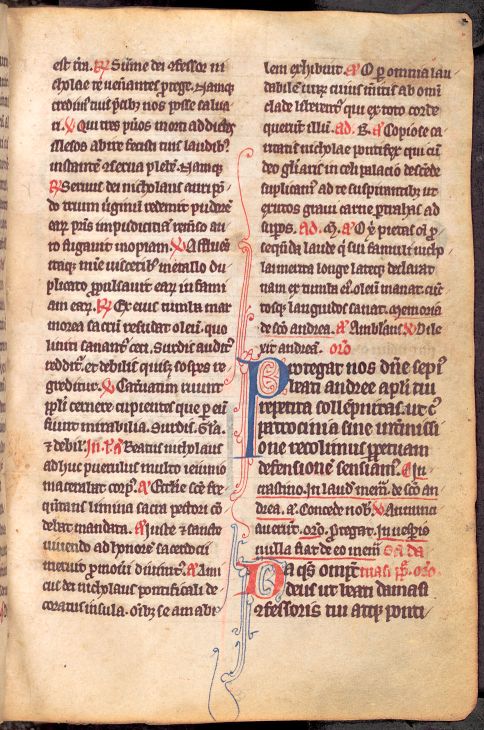 est cra. R Sūme dei ɔfessor ni
cholae te venātes protege. Namq
credim tuis p̄cib nos posse salua
ri. V Qui tres pūos morti addictos
illesos abire fecisti tuis laudib
instantē ɔserva plebē. Namque
R Servus dei nicholaus auri pō
do trium uirginū redemit pudorē
earū pris impudicitiā remiso au
ro fugauit inopiam. V Affluen
itaq mīe visceribus metallo du
plicato propulsauit earū infami
am earū. R Ex eius tumba mar
morea sacrū resudat oleū quo
liniti sanant ceci. Surdis auditus
reddit et debilis quisq sospes re
greditur. V Cateruatim ruunt
ipli cernere cupientes que p eū
fiunt mirabilia. Surdis. Gla.
et debil. In. l. a. Beatus nicholaus
adhuc puerulus multo ieiunio
macerabat corpus. A Ecclie scē fre
quētans limina sacra pectori cō
debat mandata. A Iuste et sancte
uiuendo ad honorē sacerdocii
meruit pmoueri diuinit. A Ami
cus dei nicholaus pontificali de
coratus insula. oīb se amabi
lem exhibuit. A O p omnia lau
dabilē virū cuius meritis ab omi
clade liberētur qui ex toto corde
querūt illū. ad. B. A Copiose ca
ritatis nicholae pontifex qui cū
deo gliaris in celi palacio descēde
suplicam ad te suspirantibus ut
exutos graui carne pertrahas ad
supos. ad. M. A O xpi pietas oī p
sequēda laude que sui famuli nicho
lai merita longe lateq declarat
nam ex tumba ei oleū manat cūc
tosq languidos sanat. Memoria
de scō andrea. A Ambulans. V Dile
xit andreā. oro
Protegat nos dn̄e sepi
beati andree apli tui
repetita sollēpnitas. ut c
patrocinia sine intermissi
one recolimus ppetuam
defensionē senciam. In
crastino. In laud. mem. de scō an
drea. a. Concede nob. V Annunci
auerūt. oro. Protegat. In uespis
nulla fiat de eo mem. Sci da
Da qs omps masi pp. oro
deus ut beati damasi
ɔfessoris tui atq ponti